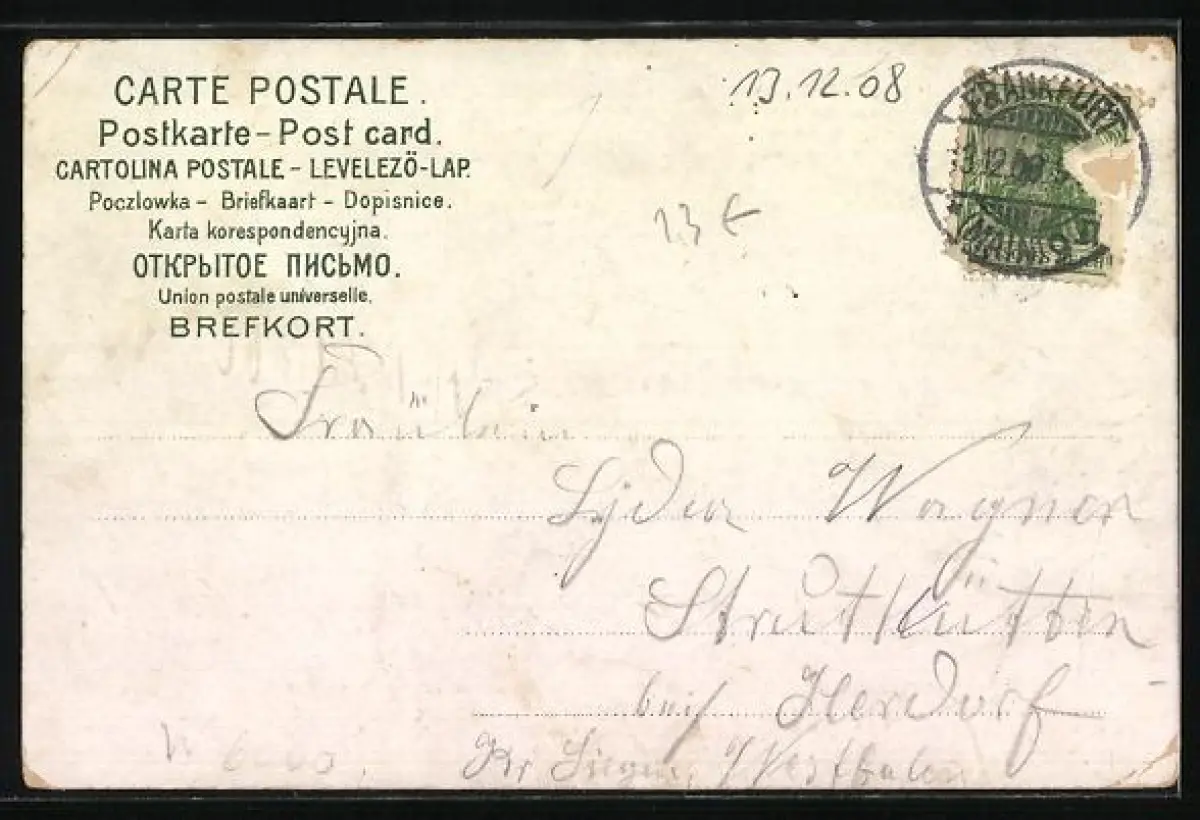 CARTE POSTALE.
Postkarte – Post card.
CARTOLINA POSTALE – LEVELEZÖ-LAP.
Poczlowka – Briefkaart – Dopisnice.
Karta korespondencyjna.
ОТКРЫТОЕ ПИСЬМО.
Union postale universelle.
BREFKORT.
13.12.08
13 €
FRANKFURT
12.08
(MAIN) 9
Fräulein
Lydia Wagner
Struthütten
bei Herdorf
Kr Siegen, Westfalen